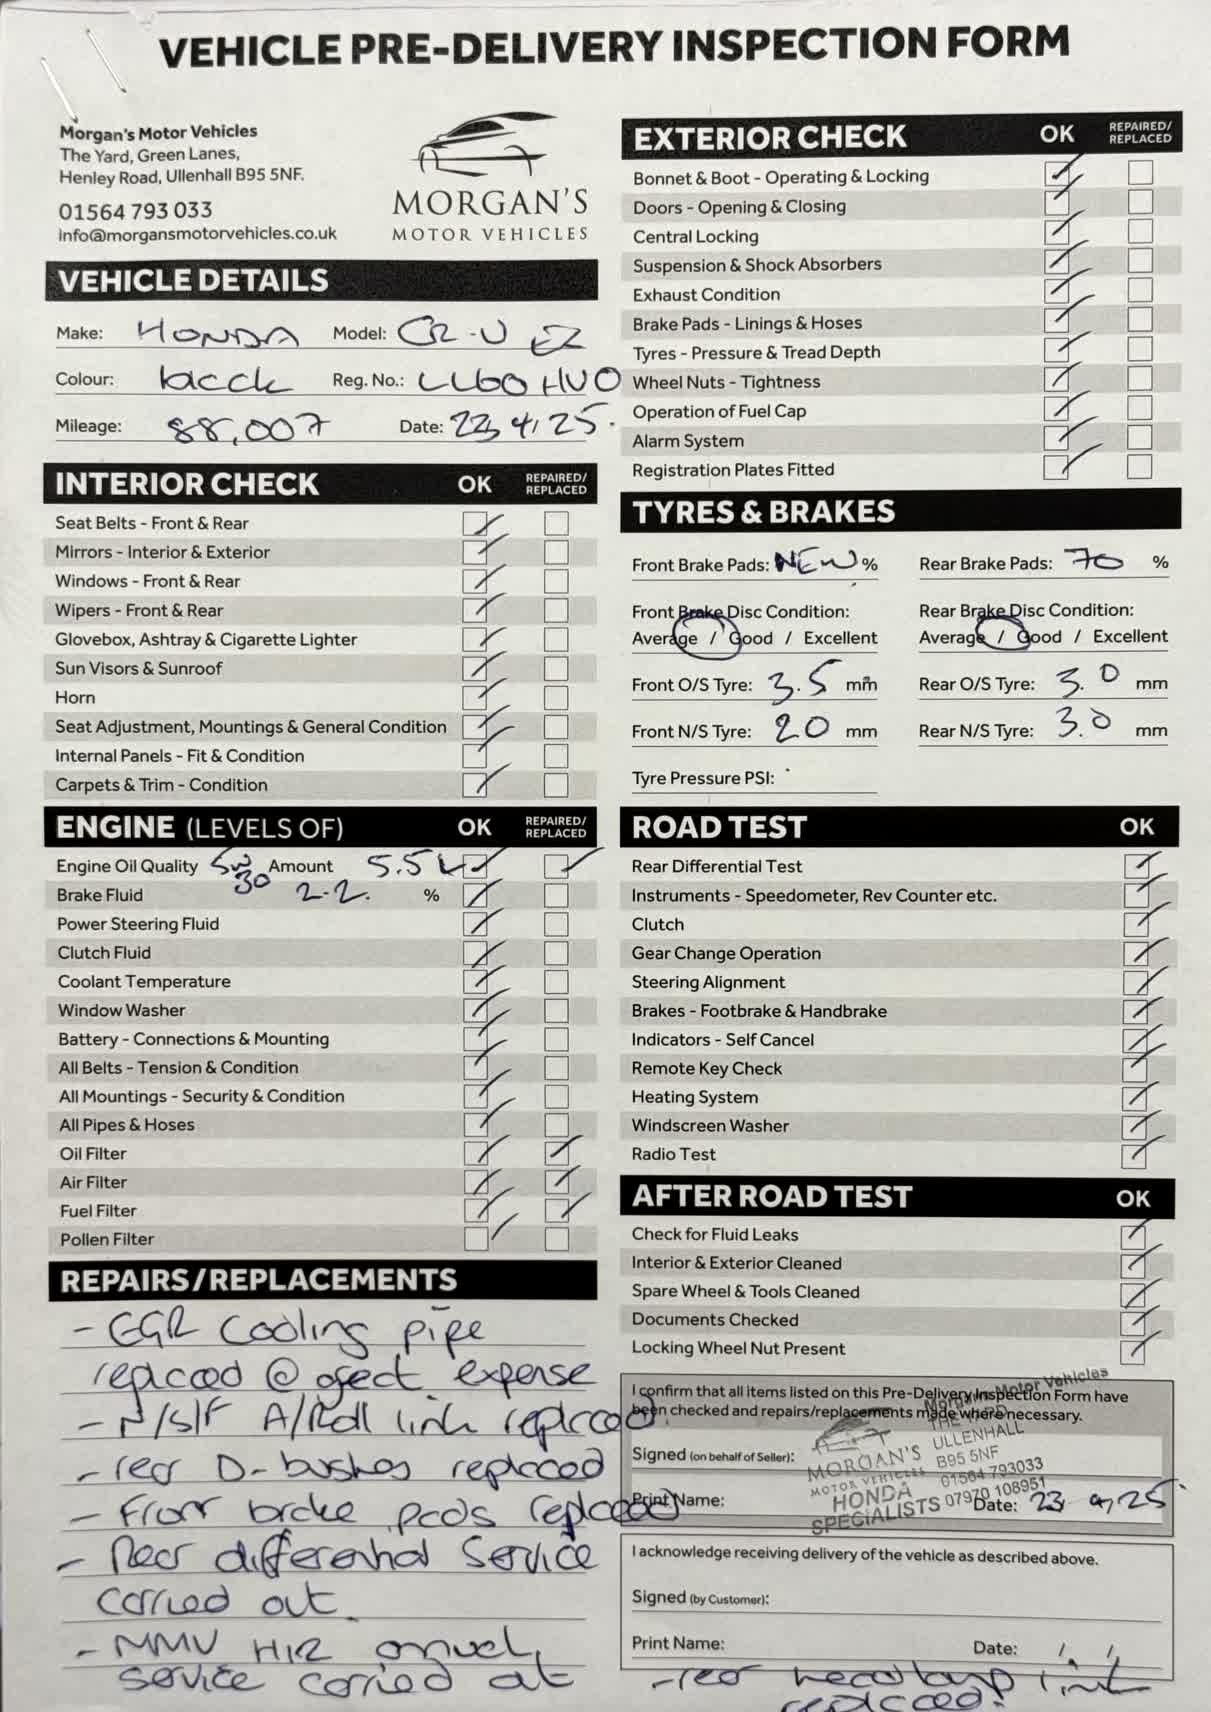 VEHICLE PRE-DELIVERY INSPECTION FORM
Morgan's Motor Vehicles
The Yard, Green Lanes,
Henley Road, Ullenhall B95 5NF.
01564 793 033
Info@morgansmotorvehicles.co.uk
MORGAN'S
MOTOR VEHICLES
VEHICLE DETAILS
Make: HONDA Model: CR-V EX
Colour: black Reg. No.: LL60 HVO
Mileage: 88,007 Date: 23,4,25.
INTERIOR CHECK OK REPAIRED/ REPLACED
Seat Belts - Front & Rear
Mirrors - Interior & Exterior
Windows - Front & Rear
Wipers - Front & Rear
Glovebox, Ashtray & Cigarette Lighter
Sun Visors & Sunroof
Horn
Seat Adjustment, Mountings & General Condition
Internal Panels - Fit & Condition
Carpets & Trim - Condition
ENGINE (LEVELS OF) OK REPAIRED/ REPLACED
Engine Oil Quality 5w 30 Amount 5.5 L
Brake Fluid 2.2. %
Power Steering Fluid
Clutch Fluid
Coolant Temperature
Window Washer
Battery - Connections & Mounting
All Belts - Tension & Condition
All Mountings - Security & Condition
All Pipes & Hoses
Oil Filter
Air Filter
Fuel Filter
Pollen Filter
REPAIRS/REPLACEMENTS
- EGR cooling pipe
replaced @ expense
- N/S/F A/Roll link replaced.
- rear D-bushes replaced
- Front brake pads replaced
- Rear differential service
carried out.
- MMV HR annual
service carried out
EXTERIOR CHECK OK REPAIRED/ REPLACED
Bonnet & Boot - Operating & Locking
Doors - Opening & Closing
Central Locking
Suspension & Shock Absorbers
Exhaust Condition
Brake Pads - Linings & Hoses
Tyres - Pressure & Tread Depth
Wheel Nuts - Tightness
Operation of Fuel Cap
Alarm System
Registration Plates Fitted
TYRES & BRAKES
Front Brake Pads: NEW % Rear Brake Pads: 70 %
Front Brake Disc Condition: Rear Brake Disc Condition:
Average / Good / Excellent Average / Good / Excellent
Front O/S Tyre: 3.5 mm Rear O/S Tyre: 3.0 mm
Front N/S Tyre: 20 mm Rear N/S Tyre: 3.0 mm
Tyre Pressure PSI:
ROAD TEST OK
Rear Differential Test
Instruments - Speedometer, Rev Counter etc.
Clutch
Gear Change Operation
Steering Alignment
Brakes - Footbrake & Handbrake
Indicators - Self Cancel
Remote Key Check
Heating System
Windscreen Washer
Radio Test
AFTER ROAD TEST OK
Check for Fluid Leaks
Interior & Exterior Cleaned
Spare Wheel & Tools Cleaned
Documents Checked
Locking Wheel Nut Present
I confirm that all items listed on this Pre-Delivery Inspection Form have
been checked and repairs/replacements made where necessary.
Signed (on behalf of Seller):
Print Name: Date: 23, 4, 25.
Morgans Motor Vehicles
THE YARD
ULLENHALL
B95 5NF
01564 793033
07970 108951
MORGAN'S
MOTOR VEHICLES
HONDA
SPECIALISTS
I acknowledge receiving delivery of the vehicle as described above.
Signed (by Customer):
Print Name: Date: / /
- rear link
replaced.